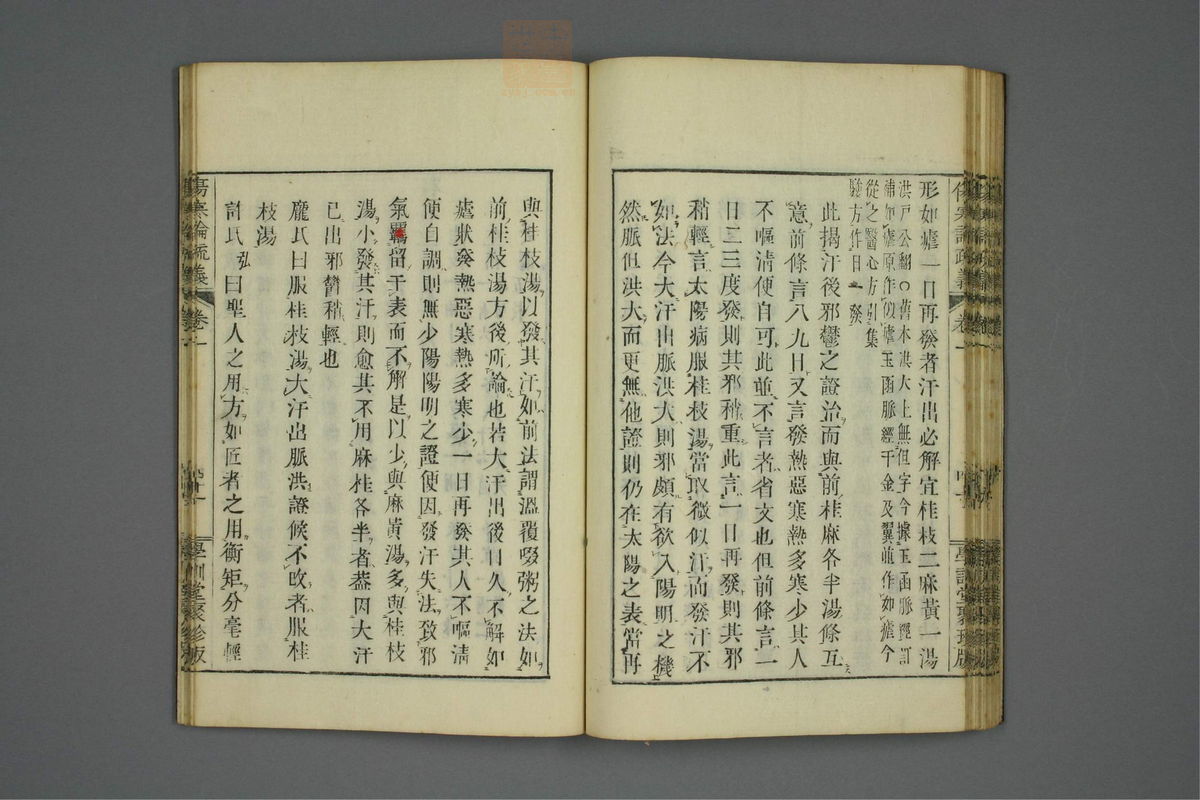 形如瘧一日再發者汗出必解宜桂枝二麻黃一湯
洪戸公翻○舊本洪大上無但字今據玉函脈經訂
補如瘧原作似瘧玉函脈經千金及翼並作如瘧今
從之醫心方引集
驗方作日一發
此揭汗後邪鬱之證治而與前桂麻各半湯條互
意前條言八九日又言發熱惡寒熱多寒少其人
不嘔清便自可此並不言者省文也但前條言一
日二三度發則其邪稍重此言一日再發則其邪
稍輕言太陽病服桂枝湯當取微似汗而發汗不
如法今大汗出脈洪大則邪頗有欲入陽明之機
然脈但洪大而更無他證則仍在太陽之表當再
與桂枝湯以發其汗如前法謂溫覆啜粥之法如
前桂枝湯方後所論也若大汗出後日久不解如
瘧狀發熱惡寒熱多寒少一日再發其人不嘔清
便自調則無少陽陽明之證便因發汗失法致邪
氣羈留于表而不解是以少與麻黃湯多與桂枝
湯小發其汗則愈其不用麻桂各半者蓋因大汗
已出邪鬱稍輕也
龐氏曰服桂枝湯大汗出脈洪證候不改者服桂
枝湯
許氏弘曰聖人之用方如匠者之用衡矩分毫輕
傷寒論疏義
卷一
四十一
學訓堂聚珍版